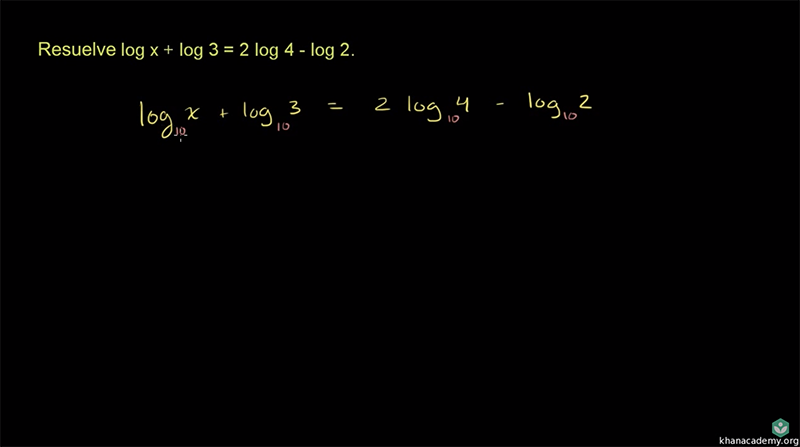 Resuelve log x + log 3 = 2 log 4 - log 2.
log₁₀ x + log₁₀ 3 = 2 log₁₀ 4 - log₁₀ 2
khanacademy.org